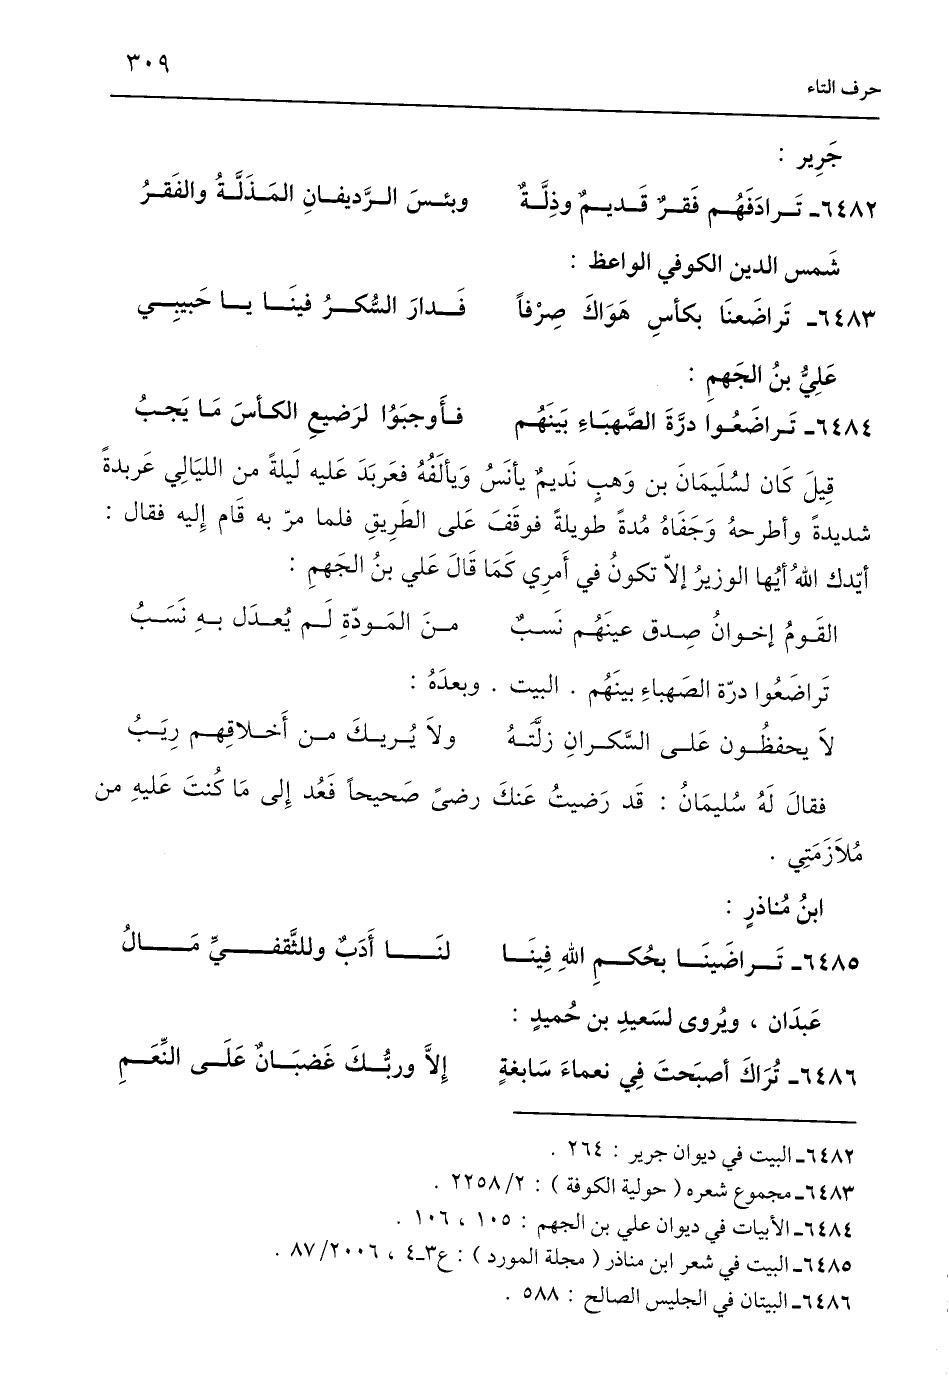 ٣٠٩
حرف التاء
جَرِير :
٦٤٨٢ـ تَـرادَفَهُـم فَقـرٌ قَـديـمٌ وذِلَّـةٌ وبئـسَ الـرَّديفـانِ المَـذَلَّـةُ والفَقـرُ
شَمس الدين الكوفي الواعظ :
٦٤٨٣ـ تَراضَعنَا بكأسِ هَوَاكَ صِرْفاً فَـدارَ السُّكـرُ فينَـا يـا حَبيبِـي
عَلِيُّ بنُ الجَهمِ :
٦٤٨٤ـ تَـراضَعُـوا درَّةَ الصَّهبَاءِ بَينَهُم فـأَوجبَوُا لرَضيعِ الكـأسَ مَـا يَجـبُ
قِيلَ كَان لسُليمَانَ بن وَهبٍ نَديمٌ يأنَسُ وَيألَفُهُ فعَربَدَ عَليه لَيلةً من الليَالي عَربدةً
شديدةً وأطرحهُ وَجَفَاهُ مُدةً طويلةً فوقَفَ عَلى الطَريقِ فلما مرّ به قَام إليه فقال :
أيّدك اللهُ أيُها الوزيرُ إلاّ تكونُ في أمرِي كَمَا قَالَ عَلي بنُ الجَهمِ :
القَـومُ إخـوانُ صِـدق عينَهُـم نَسـبٌ مـنَ المَـودّةِ لَـم يُعـدَل بـهِ نَسَـبُ
تَراضَعُوا درّة الصَهباءِ بينَهُم . البيت . وبعدَهُ :
لاَ يحفظُـون عَلـى السَّكـرانِ زلَّتَـهُ ولاَ يُـريـكَ مـن أَخـلاقِهـم رِيَـبُ
فقالَ لَهُ سُليمَانُ : قَد رَضيتُ عَنكَ رضىً صَحيحاً فَعُد إلى مَا كُنتَ عَليهِ من
مُلاَزَمَتِي .
ابنُ مُناذرٍ :
٦٤٨٥ـ تَـراضَينَـا بحُكـمِ اللهِ فِينَـا لنَـا أَدَبٌ وللثَّقفـيِّ مَـالُ
عَبدَان ، ويُروى لسَعيدِ بن حُميدٍ :
٦٤٨٦ـ تُرَاكَ أصبَحتَ فِي نعماءَ سَابغةٍ إلاَّ وربُّـكَ غَضبَـانٌ عَلَـى النِّعَـمِ
٦٤٨٢ـ البيت في ديوان جرير : ٢٦٤ .
٦٤٨٣ـ مجموع شعره ( حولية الكوفة ) : ٢/ ٢٢٥٨ .
٦٤٨٤ـ الأبيات في ديوان علي بن الجهم : ١٠٥ ، ١٠٦ .
٦٤٨٥ـ البيت في شعر ابن مناذر ( مجلة المورد ) : ع٣ـ٤ ، ٢٠٠٦/ ٨٧ .
٦٤٨٦ـ البيتان في الجليس الصالح : ٥٨٨ .